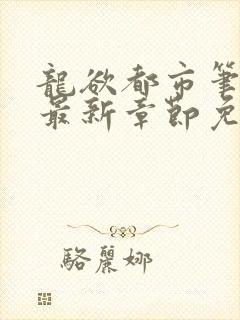 龍欲都市筆
最新章節免
駱麗娜